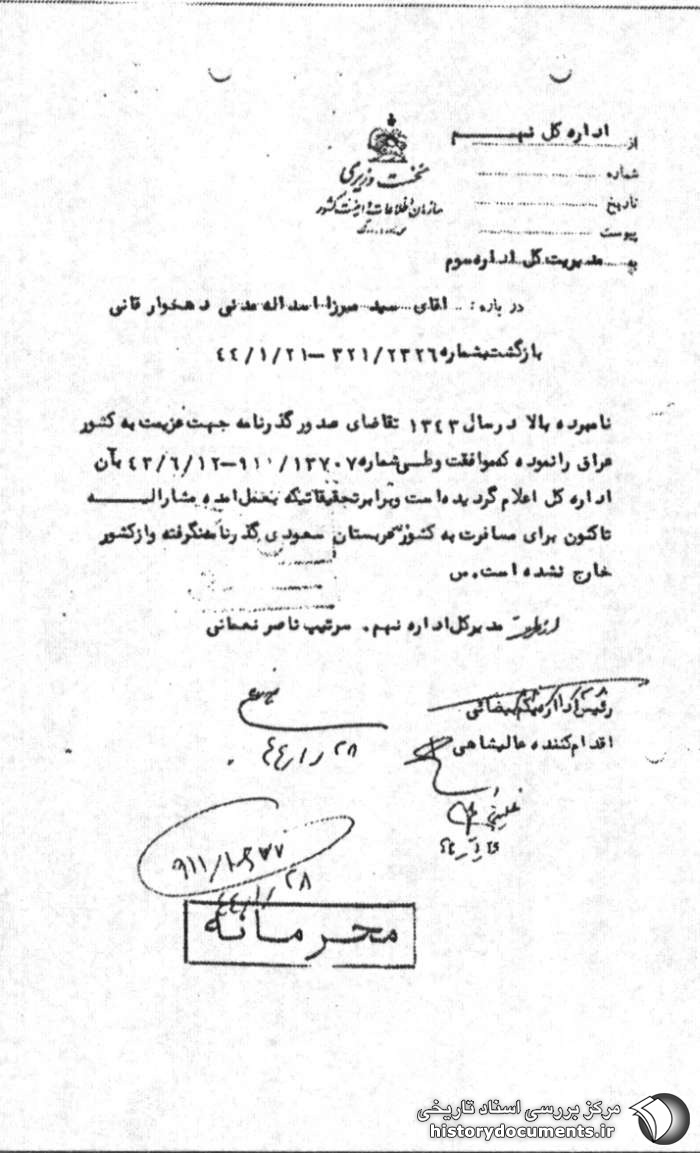 اداره کل نهـــم
از
نخست وزیری
شماره
سازمان اطلاعات و امنیت کشور
تاریخ
پیوست
به مدیریت کل اداره سوم
در باره: آقای سید میرزا اسداله مدنی دهخوارقانی
بازگشت بشماره ۳۲۱/۲۳۲۶ – ۴۴/۱/۲۱
نامبرده بالا در سال ۱۳۴۳ تقاضای صدور گذرنامه جهت عزیمت به کشور
عراق را نموده که موافقت و طی شماره ۹۱۱۰/۱۳۷۰۷–۴۳/۶/۱۲ بآن
اداره کل اعلام گردیده است و برابر تحقیقاتیکه بعمل آمده مشارالیـــه
تاکنون برای مسافرت به کشور عربستان سعودی گذرنامه نگرفته و از کشور
خارج نشده است. س
از طرف مدیرکل اداره نهم. سرتیپ ناصر نعمانی
رئیس اداره یکم بیضائی
اقدام کننده عالیشاهی
۴۴/۱/۲۸
۴۴/۱/۲۸
محرمانه
مرکز بررسی اسناد تاریخی
historydocuments.ir